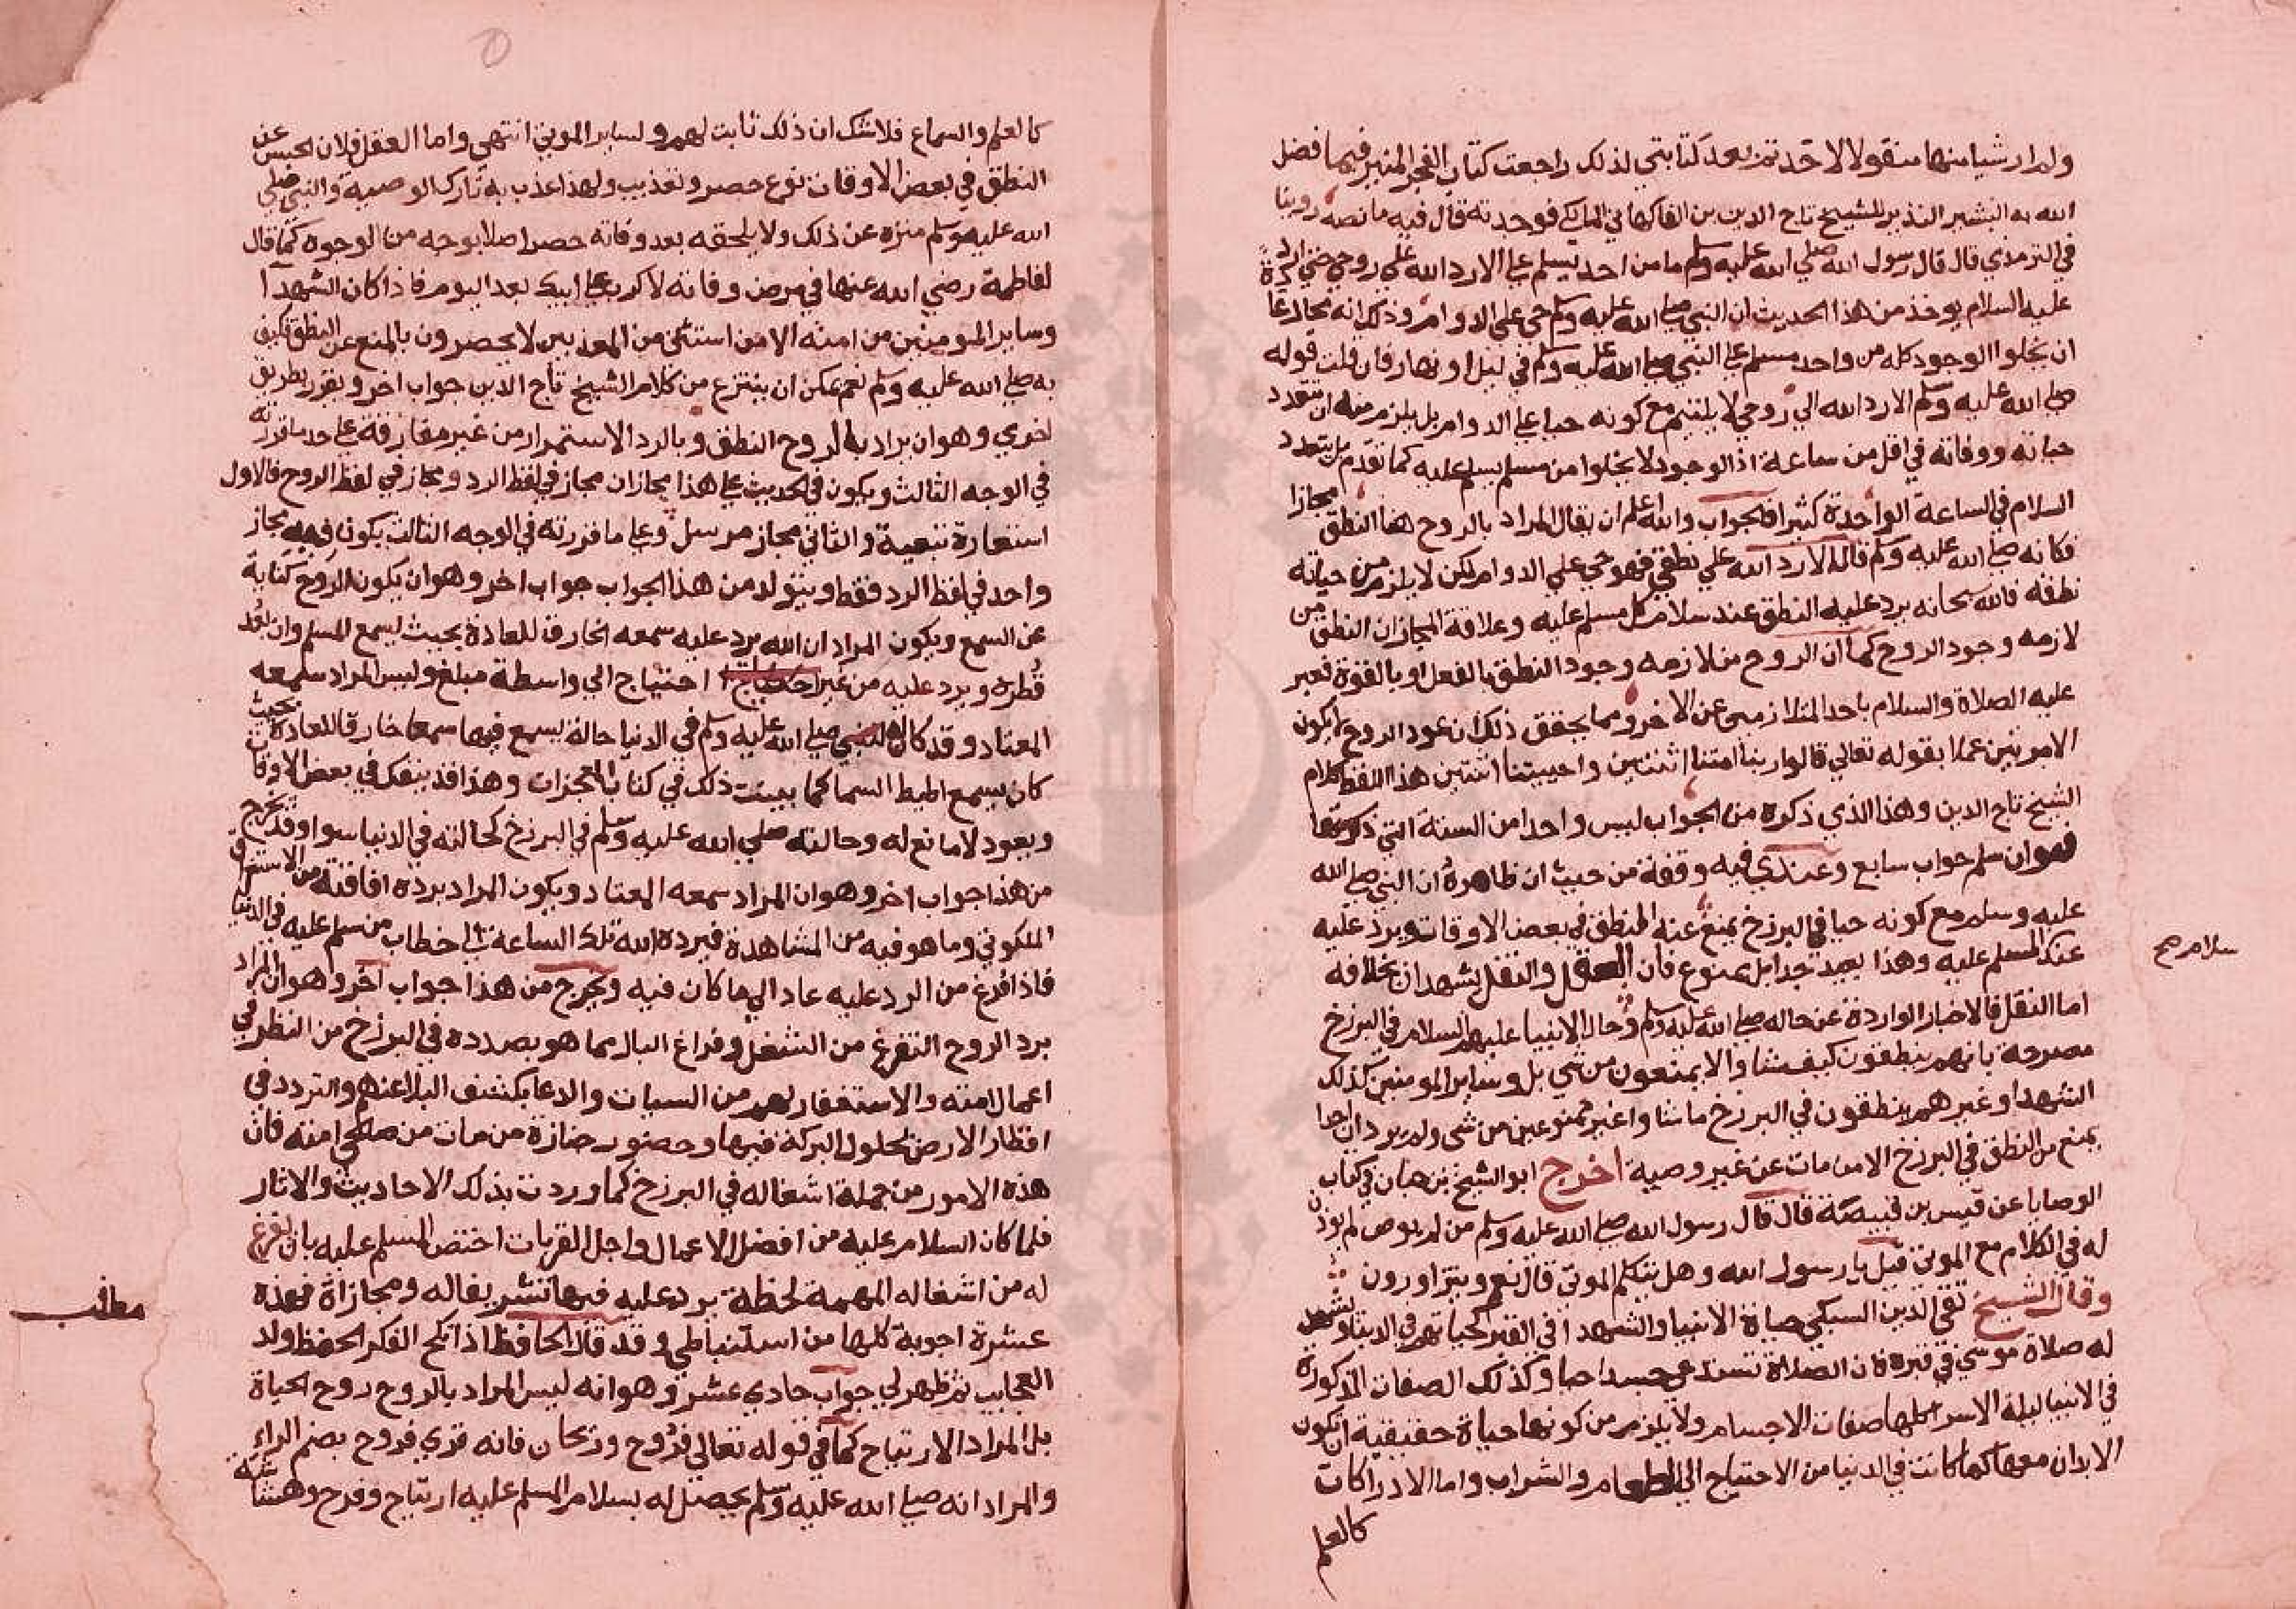 ولم ار شيا منها منقولا لاحد ثم بعد كتابتي لذلك راجعت كتاب الفجر المنير فيما فضل
الله به البشير النذير للشيخ تاج الدين بن الفاكهاني المالكي فوجدته قال فيه ما نصه روينا
في الترمذي قال قال رسول الله صلي الله عليه وسلم ما من احد يسلم علي الا رد الله علي روحي حتي ارد
عليه السلام يوخذ من هذا الحديث ان النبي صلي الله عليه وسلم حي علي الدوام وذلك انه محال عادة
ان يخلوا الوجود كله من واحد مسلم علي النبي صلي الله عليه وسلم في ليل او نهار فان قلت قوله
صلي الله عليه وسلم الا رد الله الي روحي لا يلتيم مع كونه حيا علي الدوام بل يلزم منه ان تتعدد
حياته ووفاته في اقل من ساعة اذ الوجود لا يخلوا من مسلم يسلم عليه كما تقدم بل يتعدد
السلام في الساعة الواحدة كثيرا فالجواب والله اعلم ان يقال المراد بالروح هنا النطق مجازا
فكانه صلي الله عليه وسلم قال الا رد الله علي نطقي فهو حي علي الدوام لكن لا يلزم من حياته
نطقه فالله سبحانه يرد عليه النطق عند سلام كل مسلم عليه وعلاقة المجاز ان النطق من
لازمه وجود الروح كما ان الروح من لازمه وجود النطق بالفعل او بالقوة فعبر
عليه الصلاة والسلام باحد المتلازمين عن الاخر ومما يحقق ذلك ان عود الروح لا يكون
الا مرتين عملا بقوله تعالي قالوا ربنا امتنا اثنتين واحييتنا اثنتين هذا لفظ كلام
الشيخ تاج الدين وهذا الذي ذكره من الجواب ليس واحدا من الستة التي ذكرتها
فهو ان سلم جواب سابع وعندي فيه وقفة من حيث ان ظاهره ان النبي صلي الله
عليه وسلم مع كونه حيا في البرزخ يمنع عنه النطق في بعض الاوقات ويرد عليه
عند المسلم عليه وهذا بعيد جدا بل ممنوع فان العقل والنقل يشهدان بخلافه
سلام صح
اما النقل فالاخبار الواردة عن حاله صلي الله عليه وسلم وحال الانبيا عليهم السلام في البرزخ
مصرحة بانهم ينطقون كيف شاوا لا يمنعون من شي بل وساير المومنين كذلك
الشهدا وغيرهم ينطقون في البرزخ ما شاوا غير ممنوعين من شي ولم يرد ان احدا
يمنع من النطق في البرزخ الا من مات عن غير وصية اخرج ابو الشيخ بن حبان في كتاب
الوصايا عن قيس بن قبيصة قال قال رسول الله صلي الله عليه وسلم من لم يوص لم يوذن
له في الكلام مع الموتي قيل يا رسول الله وهل يتكلم الموتي قال نعم ويتزاورون
وقال الشيخ تقي الدين السبكي حياة الانبيا والشهدا في القبر كحياتهم في الدنيا ويشهد
له صلاة موسي في قبره فان الصلاة تستدعي جسدا حيا وكذلك الصفات المذكورة
في الانبيا ليلة الاسرا كلها صفات الاجسام ولا يلزم من كونها حياة حقيقية ان تكون
الابدان معها كما كانت في الدنيا من الاحتياج الي الطعام والشراب واما الادراكات
كالعلم
كالعلم والسماع فلا شك ان ذلك ثابت لهم ولساير الموتي انتهي واما العقل فلان الحبس عن
النطق في بعض الاوقات نوع حصر وتعذيب ولهذا عذب به تارك الوصية والنبي صلي
الله عليه وسلم منزه عن ذلك ولا يلحقه بعد وفاته حصر اصلا بوجه من الوجوه كما قال
لفاطمة رضي الله عنها في مرض وفاته لا كرب علي ابيك بعد اليوم فاذا كان الشهدا
وساير المومنين من امته الا من استثني من المعذبين لا يحصرون بالمنع عن النطق فكيف
به صلي الله عليه وسلم نعم يمكن ان ينتزع من كلام الشيخ تاج الدين جواب اخر ويقرر بطريق
اخري وهو ان يراد بالروح النطق وبالرد الاستمرار من غير مفارقة علي حد ما قررته
في الوجه الثالث ويكون في الحديث علي هذا مجازان مجاز في لفظ الرد ومجاز في لفظ الروح فالاول
استعارة تبعية والثاني مجاز مرسل وعلي ما قررته في الوجه الثالث يكون فيه مجاز
واحد في لفظ الرد فقط ويتولد من هذا الجواب جواب اخر وهو ان يكون الروح كناية
عن السمع ويكون المراد ان الله يرد عليه سمعه الخارق للعادة بحيث يسمع المسلم وان بعد
قطره ويرد عليه من غير احتياج الي واسطة مبلغ وليس المراد سمعه
المعتاد وقد كان للنبي صلي الله عليه وسلم في الدنيا حالة يسمع فيها سمعا خارقا للعادة بحيث
كان يسمع اطيط السما كما بينت ذلك في كتاب المعجزات وهذا قد ينفك في بعض الاوقات
ويعود لا مانع له وحالته صلي الله عليه وسلم في البرزخ كحالته في الدنيا سوا وقد يخرج
من هذا جواب اخر وهو ان المراد سمعه المعتاد ويكون المراد برده افاقته من الاستغراق
الملكوتي وما هو فيه من المشاهدة فيرده الله تلك الساعة الي خطاب من سلم عليه في الدنيا
فاذا فرغ من الرد عليه عاد الي ما كان فيه ويخرج من هذا جواب اخر وهو ان المراد
برد الروح التفرغ من الشغل وفراغ البال مما هو بصدده في البرزخ من النظر في
اعمال امته والاستغفار لهم من السيات والدعا بكشف البلا عنهم والتردد في
اقطار الارض لحلول البركة فيها وحضور جنازة من مات من صالحي امته فان
هذه الامور من جملة اشغاله في البرزخ كما وردت بذلك الاحاديث والاثار
فلما كان السلام عليه من افضل الاعمال واجل القربات اختص المسلم عليه بان يفرغ
له من اشغاله المهمة لحظة يرد عليه فيها تشريفا له ومجازاة فهذه
مطلب
عشرة اجوبة كلها من استنباطي وقد قال الحافظ اذا نكح الفكر الحفظ ولد
العجايب ثم ظهر لي جواب حادي عشر وهو انه ليس المراد بالروح روح الحياة
بل المراد الارتياح كما في قوله تعالي فروح وريحان فانه قري فروح بضم الراء
والمراد انه صلي الله عليه وسلم يحصل له بسلام المسلم عليه ارتياح وفرح وهشاشة